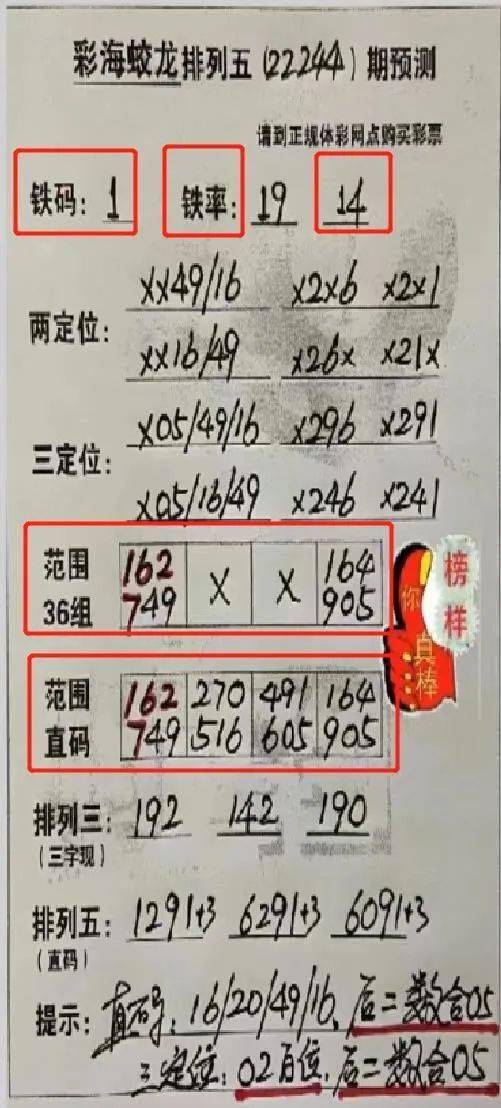 彩海蛟龙排列五(22244)期预测
请到正规体彩网点购买彩票
铁码: 1 铁率: 19 14
两定位: xx49/16 x2x6 x2x1
xx16/49 x26x x21x
三定位: x05/49/16 x296 x291
x05/16/49 x246 x241
范围 162 X X 164
36组 749 905
范围 162 270 491 164
直码 749 516 605 905
你真棒
榜样
排列三: 192 142 190
(三字现)
排列五: 1291+3 6291+3 6091+3
(直码)
提示: 直码: 16/20/49/16、后二数合05
三定位: 02百位、后二数合05